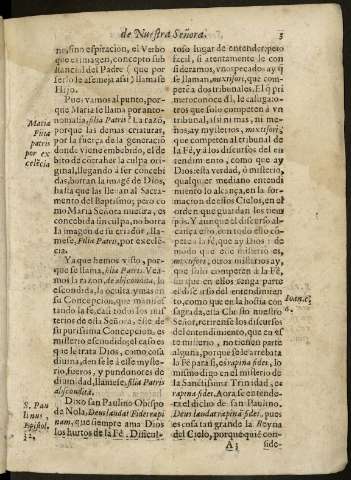 de Nuestra Señora. 3
no, sino espiracion, el Verbo
que es imagen, concepto sub
stancial del Padre (que por
serlo se asemeja asi) llamase
Hijo.
Pues vamos al punto, por-
que Maria se llama por anto-
nomasia, filia Patris? La razõ,
porque las demas criaturas,
por la fuerça de la generaciõ
donde viene embebido, el de
bito de contraher la culpa ori-
ginal, llegando à ser concebi
das, borran la imagẽ de Dios,
hasta que las llena el Sacra-
mento del Baptismo; pero co
mo Maria Señora nuestra, es
concebida sin culpa, no borra
la imagen de su criador, lla-
mese, Filia Patris, por excelẽ-
cia.
Ya que hemos visto, por-
que se llama, filia Patris. Vea
mos la razon, de absconditâ, la
escondida, la oculta; vimos en
su Concepcion, que manifes-
tando la fè, casi todos los mis
terios de esta Señora, este de
su purissima Concepcion, es
misterio escondido; el caso es
que le trata Dios, como cosa
divina, den se le à este myste-
rio, fueros, y pundonores de
divinidad, llamese, filia Patris
absconditâ.
Dixo san Paulino Obispo
de Nola, Deus laudat Fide rapi
nam, que siempre ama Dios
los hurtos de la Fè. Dificul-
Maria
Filia
patris
por ex
celẽcia
S. Pau
linus,
Epistol.
12.
toso lugar de entender, pero
facil, si atentamente le con
sideramos, vnos pecados ay q̃
se llaman, mixtifori, que com-
petẽ à dos tribunales. El q̃ pri
mero conoce dĩl, le califica, to-
dos que solo competen à vn
tribunal, si ni mas, ni me-
nos, ay mysterios, mixtifori;
que competen al tribunal de
la Fè, y à los discursos del en
tendimiento, como que ay
Dios; esta verdad, ò misterio,
qualquier mediano entendi
miento lo alcança, en la for-
macion de essos Cielos, en el
orden que guardan los tiem
pos. Y aunque el discurso al-
cança esto, con todo esso cõ-
pete à la Fè, que ay Dios: de
modo que este misterio es,
mixtifori, otros misterios ay,
que solo competen à la Fè,
sin que en ellos tenga parte
el discurso del entendimien-
to, como que en la hostia con
sagrada, esta Christo nuestro
Señor, retirense los discursos
del entendimiento, que en es
te misterio, no tienen parte
alguna, porque se le arrebata
la Fè para si, es rapina fidei, lo
mismo digo en el misterio de
la Santissima Trinidad, es
rapina fidei. Aora se entende-
ra el dicho de san Paulino,
Deus laudat rapinã fidei, pues
es cosa tan grande la Reyna
del Cielo, porque quiè con-
Ioan. c.
6.
A 3 side-